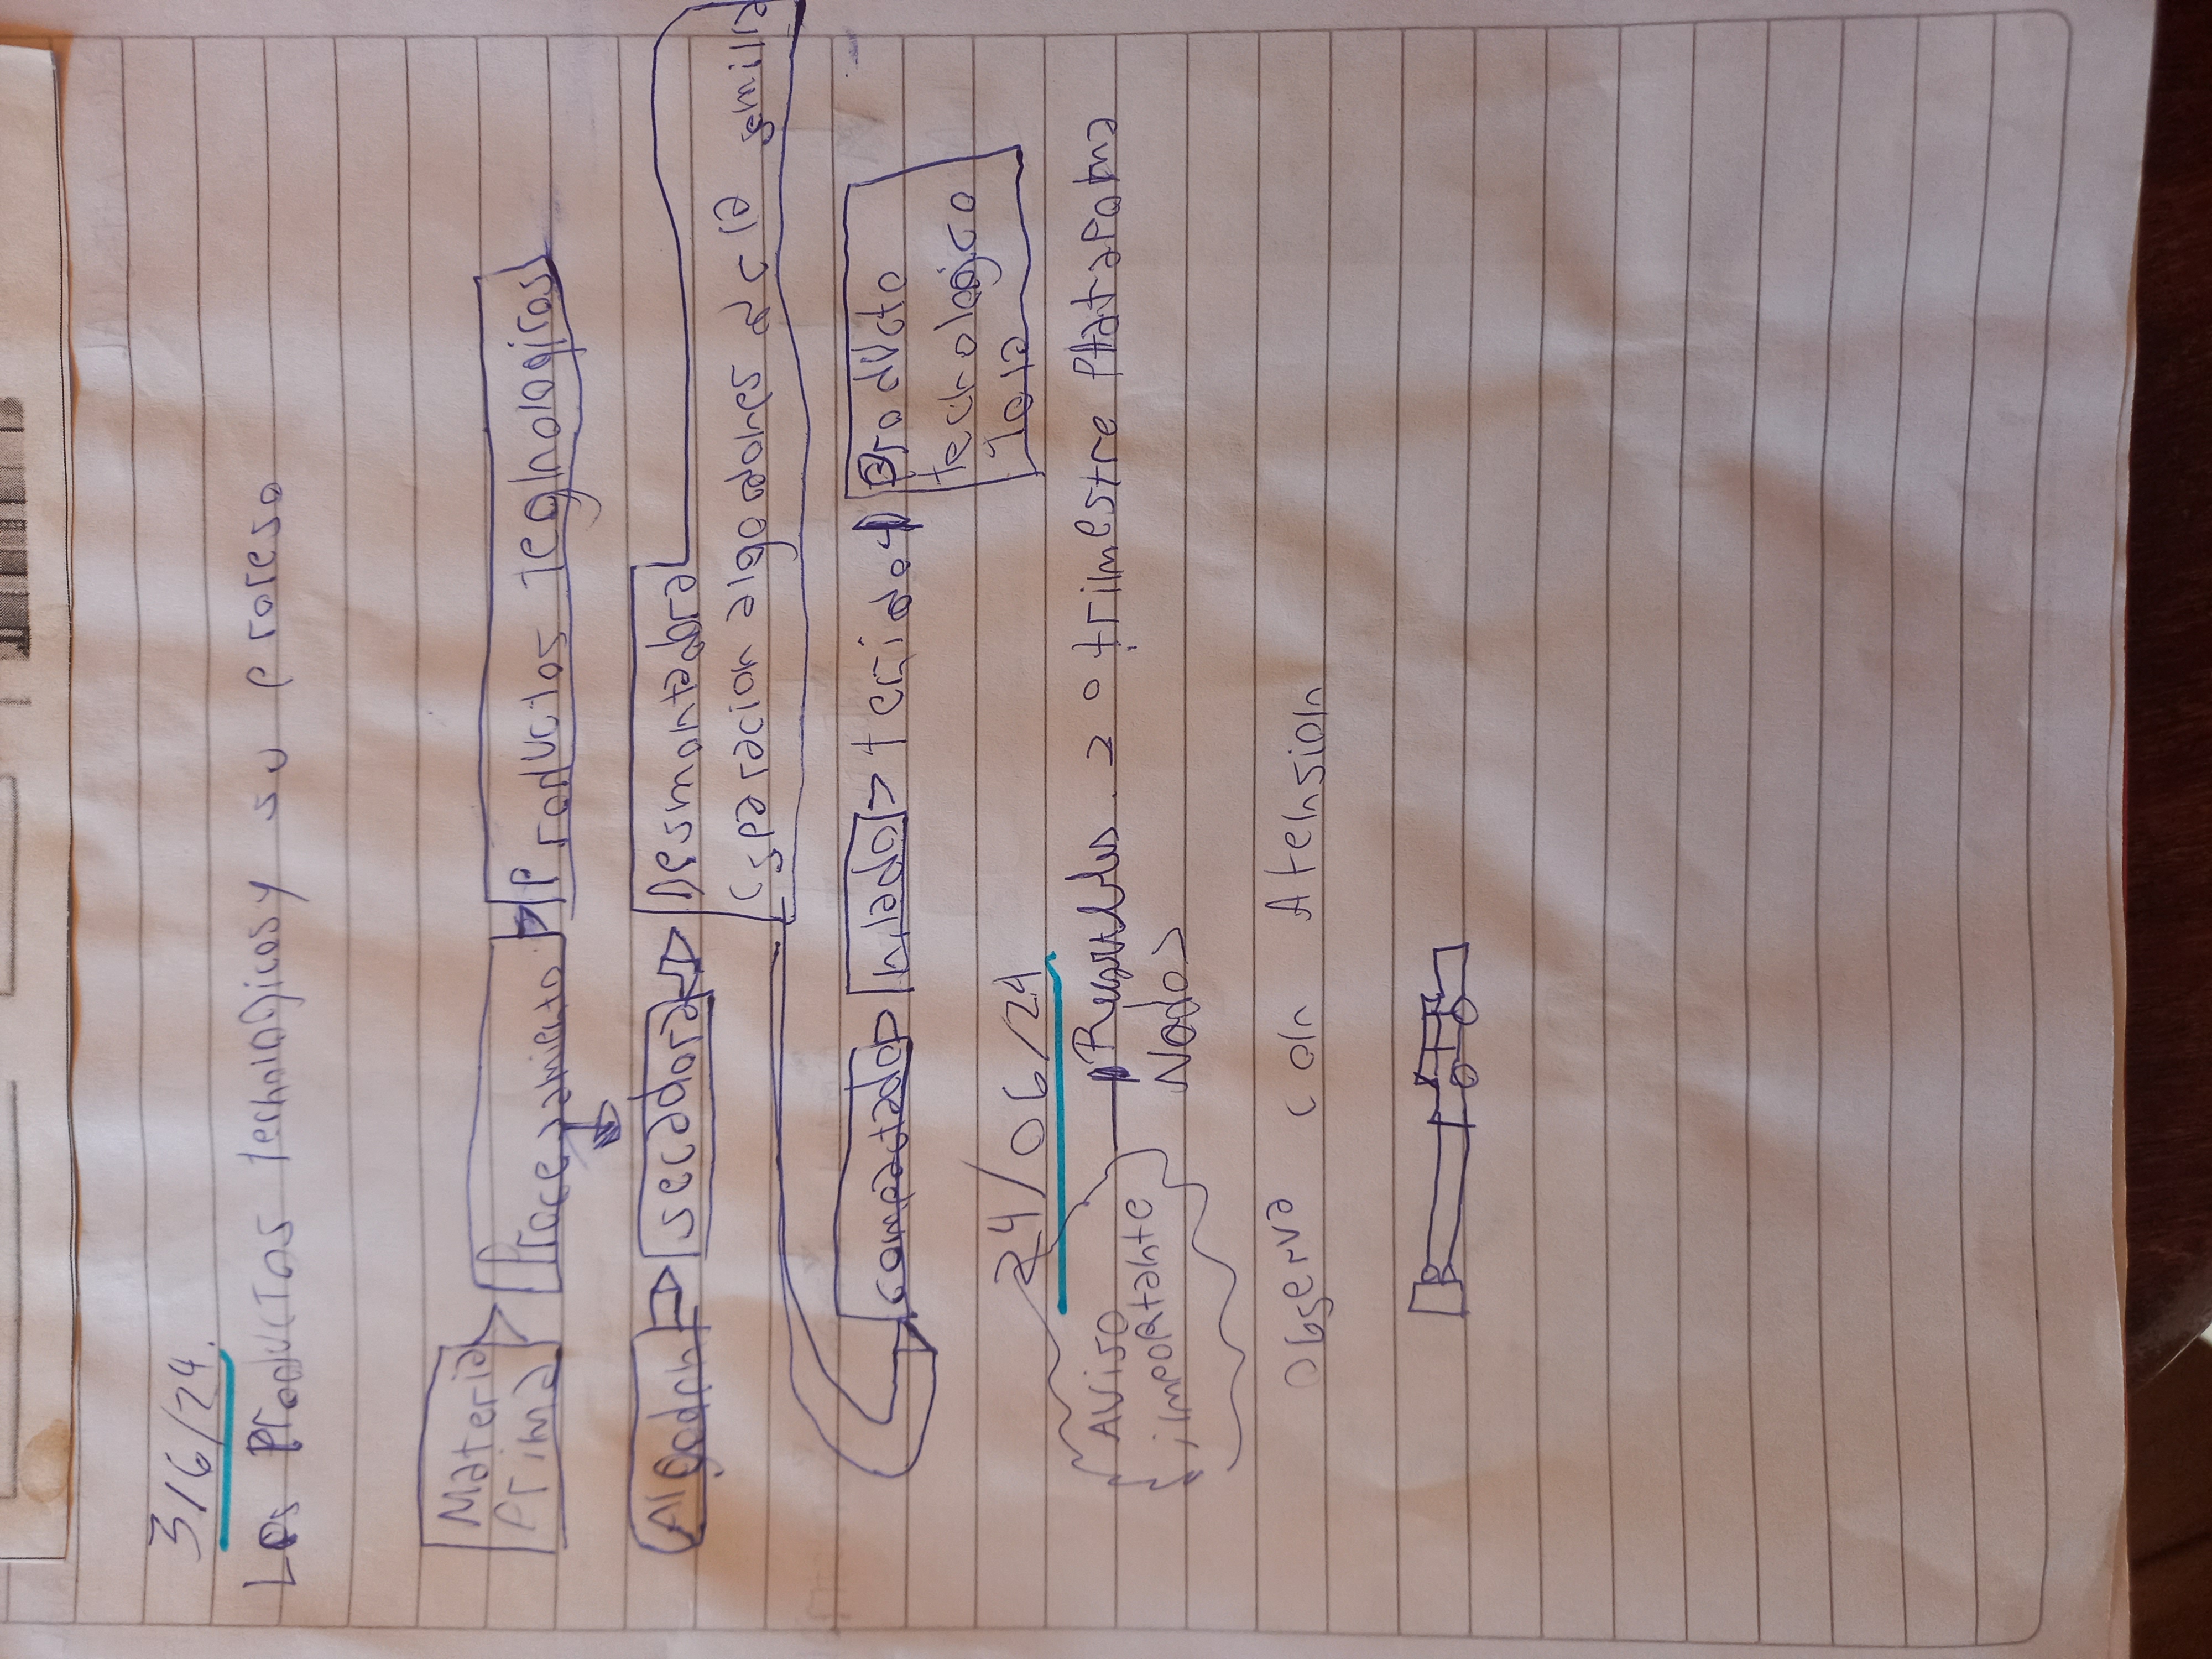 3/6/24.
Los Productos Technologicos y su proceso
Materia
Prima
Procecamiento
Productos Tecnologicos
Algodon
secadora
Desmontadora
(Separacion algodones de la semilla
compactado
hilado
tejido
Producto
tecnologico
Tela
24/06/24
Aviso
¡importante
2 o trimestre Plataporma
Nodos
Observa con Atension